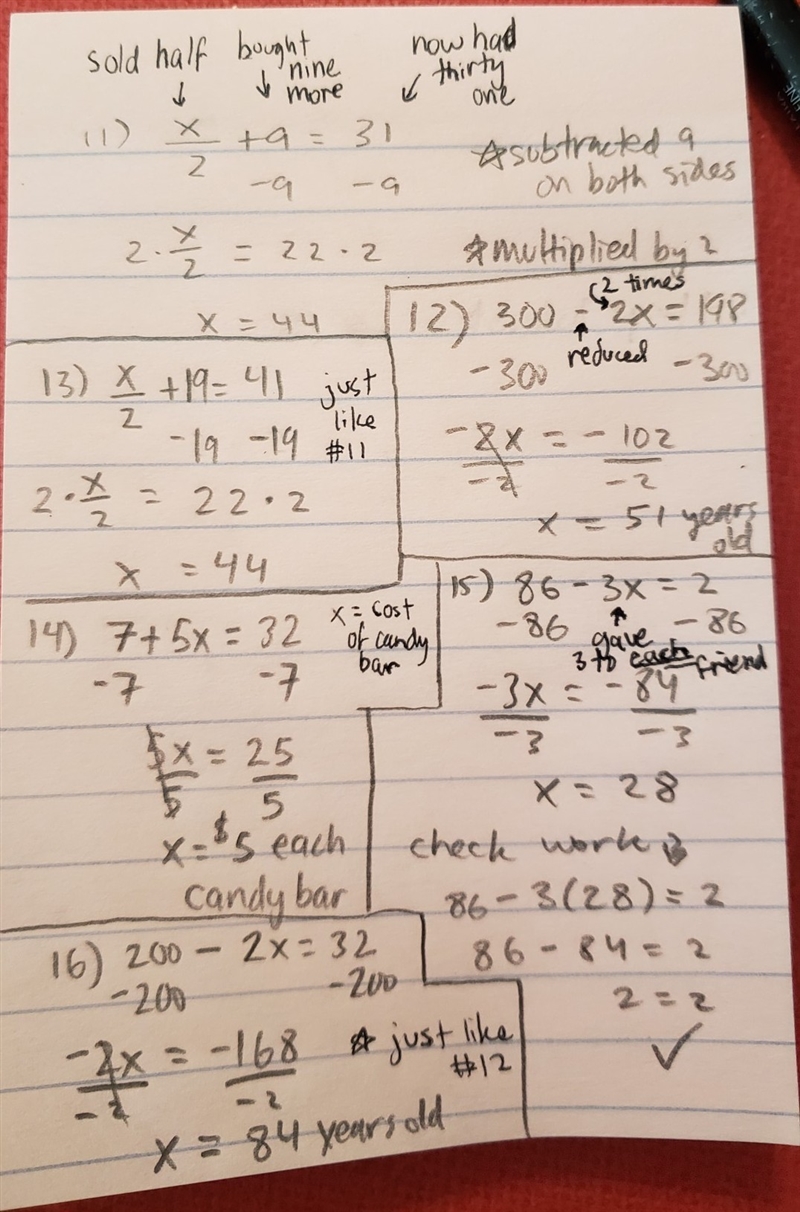 sold half bought nine more now had thirty one
11) x/2 + 9 = 31
-9 -9
☆ subtracted 9 on both sides
2 · x/2 = 22 · 2
☆ multiplied by 2
x = 44
12) 300 - 2x = 198
2 times
reduced
-300 -300
-2x/-2 = -102/-2
x = 51 years old
13) x/2 + 19 = 41
-19 -19
just like #11
2 · x/2 = 22 · 2
x = 44
14) 7 + 5x = 32
-7 -7
x = cost of candy bar
5x/5 = 25/5
x = $5 each
candy bar
15) 86 - 3x = 2
-86 -86
gave
3 to each friend
-3x/-3 = -84/-3
x = 28
check work
86 - 3(28) = 2
86 - 84 = 2
2 = 2
✓
16) 200 - 2x = 32
-200 -200
-2x/-2 = -168/-2
☆ just like #12
x = 84 years old